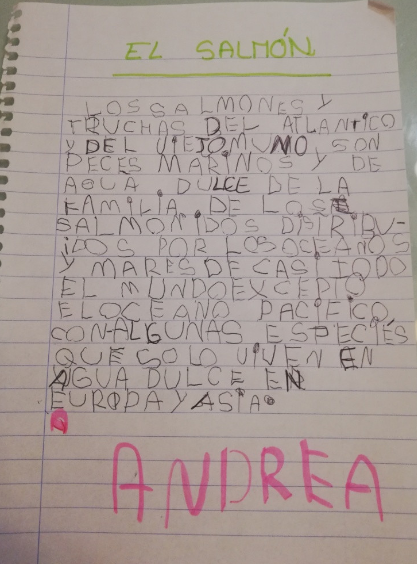 EL SALMÓN
LOS SALMONES Y
TRUCHAS DEL ATLANTICO
Y DEL VIEJO MUNO, SON
PECES MARINOS Y DE
AGUA DULCE DE LA
FAMILIA DE LOS
SALMONIDOS DISTRIBU-
IDOS POR LOS OCEANOS
Y MARES DE CASI TODO
EL MUNDO EXCEPTO
EL OCEANO PACIFICO,
CON ALGUNAS ESPECIES
QUE SOLO VIVEN EN
AGUA DULCE EN
EUROPA Y ASIA.
ANDREA